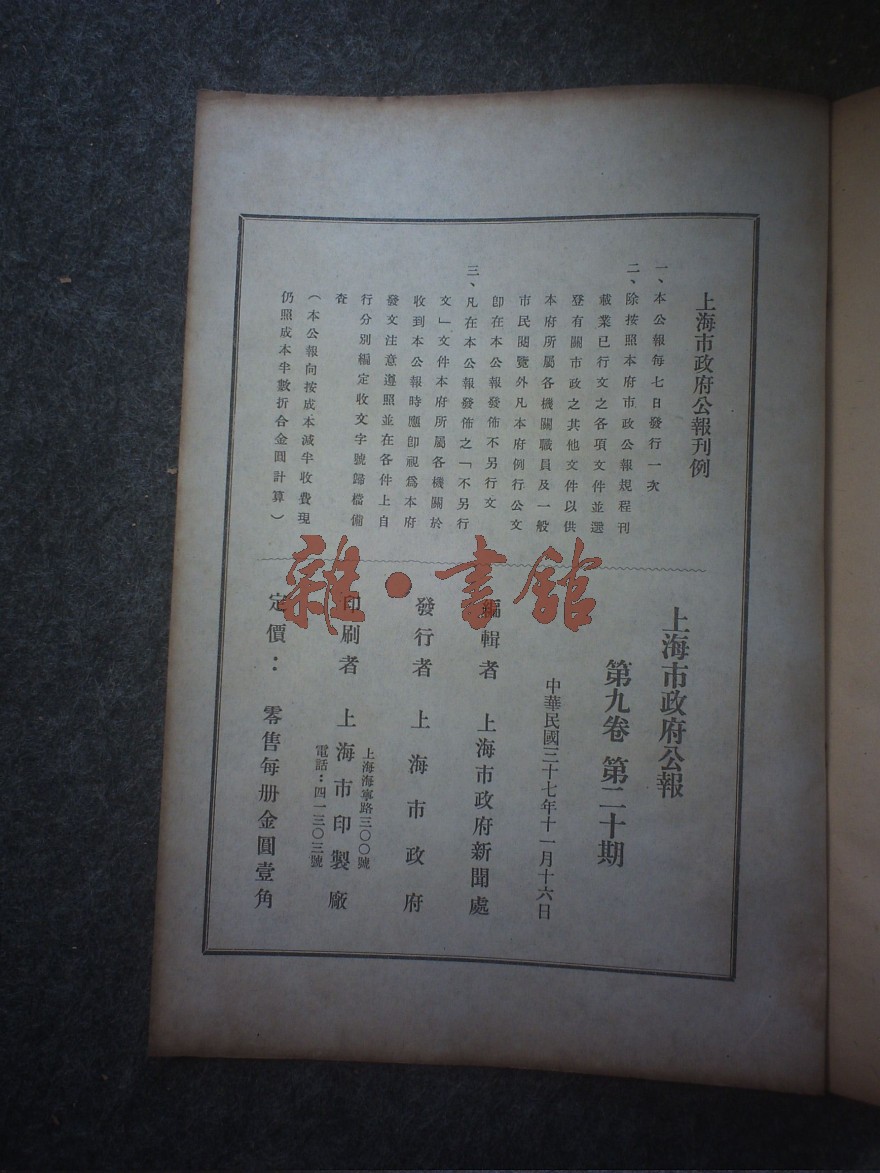 上海市政府公報刊例
一、本公報每七日發行一次
二、除按照本府市政公報規程刊
載業已行文之各項文件並選
登有關市政之其他文件以供
本府所屬各機關職員及一般
市民閱覽外凡本府例行公文
卽在本公報發佈不另行文
三、凡在本公報發佈之「不另行
文」文件本府所屬各機關於
收到本公報時應卽視爲本府
發文注意遵照並在各件上自
行分別編定收文字號歸檔備
查
（本公報向按成本減半收費現
仍照成本半數折合金圓計算）
上海市政府公報
第九卷 第二十期
中華民國三十七年十一月十六日
編輯者 上海市政府新聞處
發行者 上海市政府
印刷者 上海市印製廠
上海海寧路三〇〇號
電話：四一三〇三號
定價： 零售每册金圓壹角
雜·書館